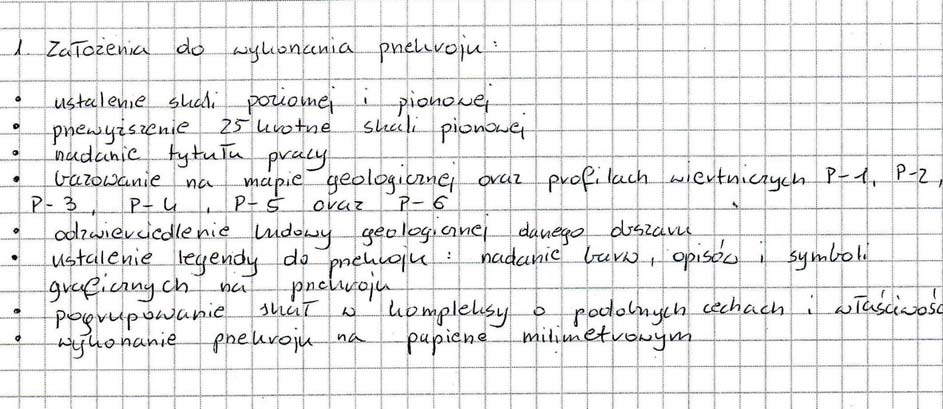 1. Założenia do wykonania przekroju:
• ustalenie skali poziomej i pionowej
• przewyższenie 25 krotne skali pionowej
• nadanie tytułu pracy
• bazowanie na mapie geologicznej oraz profilach wiertniczych P-1, P-2,
P-3, P-4, P-5 oraz P-6
• odzwierciedlenie budowy geologicznej danego obszaru
• ustalenie legendy do przekroju: nadanie barw, opisów i symboli
graficznych na przekroju
• pogrupowanie skał w kompleksy o podobnych cechach i właściwość
• wykonanie przekroju na papierze milimetrowym